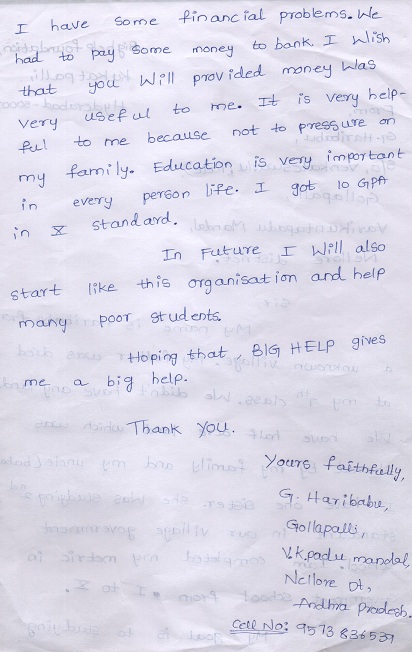 I have some financial problems. We
had to pay some money to bank. I Wish
that you Will provided money Was
very useful to me. It is very help-
ful to me because not to pressure on
my family. Education is very important
in every person life. I got 10 GPA
in X standard.
In Future I Will also
start like this organisation and help
many poor students.
Hoping that, BIG HELP gives
me a big help.
Thank you.
Yours faithfully,
G. Haribabu,
Gollapalli,
V.K.padu mandal,
Nellore Dt,
Andhra Pradesh.
Cell No: 9573836539